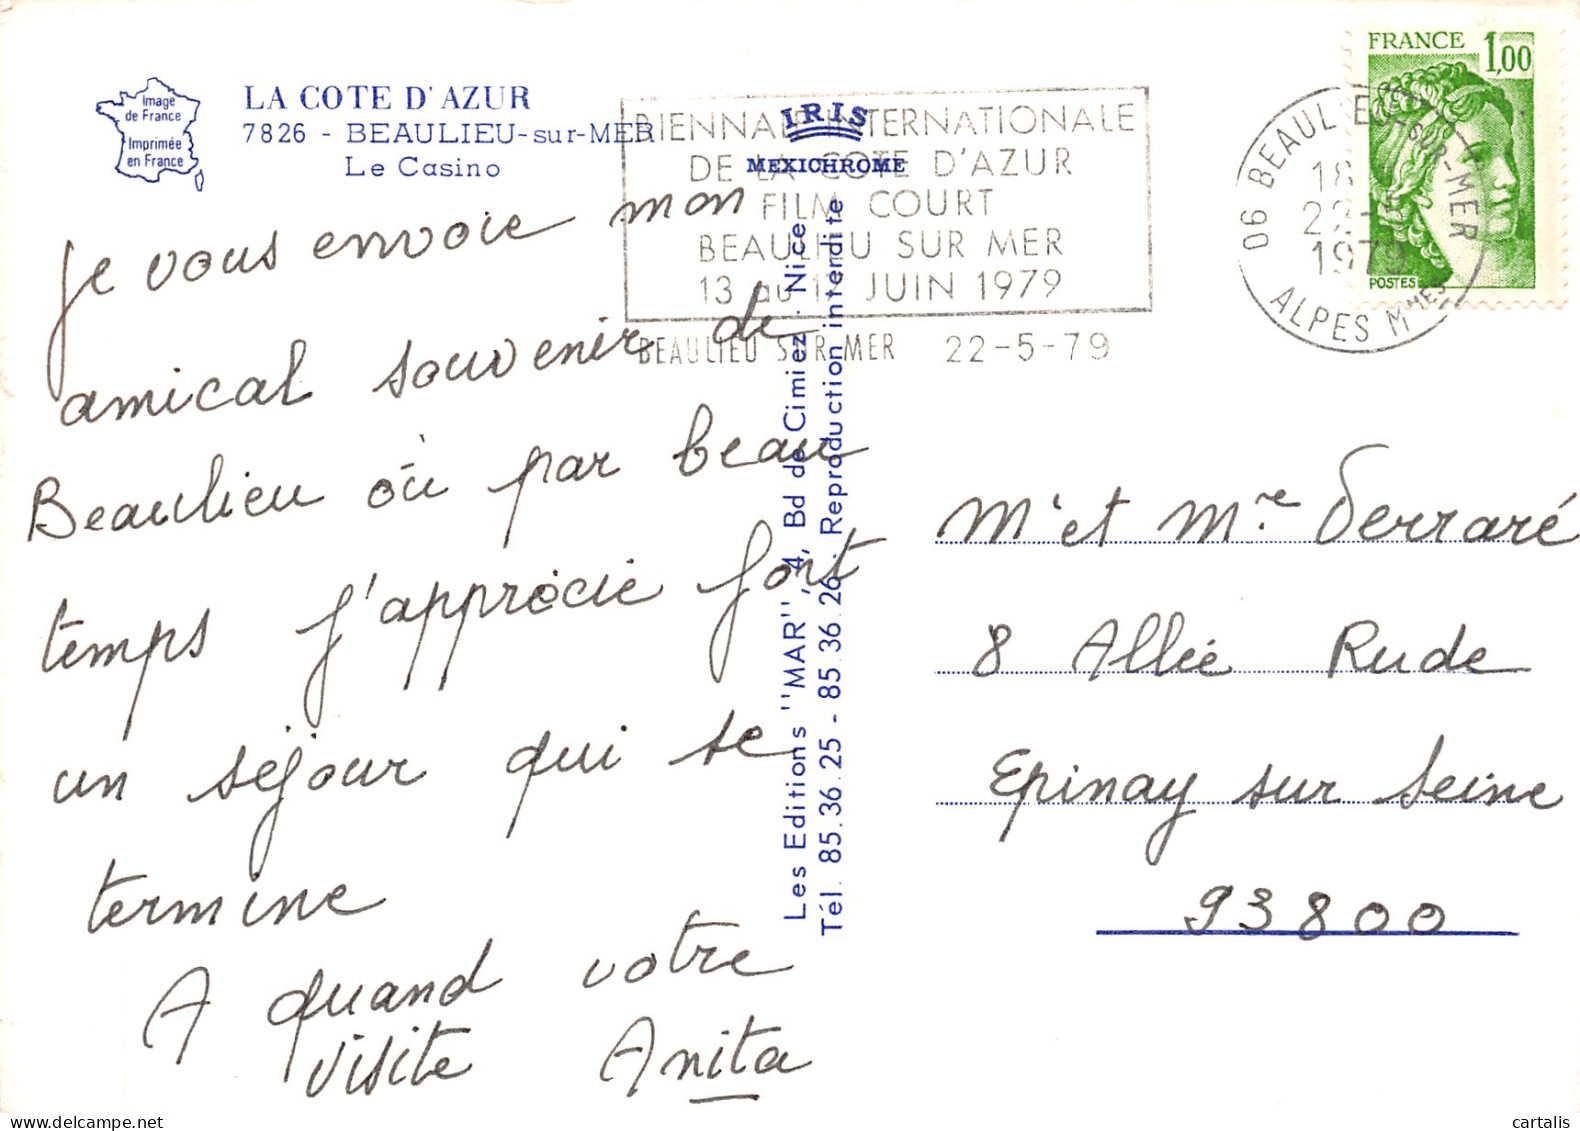 Image
de France
Imprimée
en France
LA COTE D'AZUR
7826 - BEAULIEU-sur-MER
Le Casino
IRIS
MEXICHROME
BIENNALE INTERNATIONALE
DE LA COTE D'AZUR
FILM COURT
BEAULIEU SUR MER
13 au 17 JUIN 1979
BEAULIEU SUR MER 22-5-79
06 BEAULIEU-SUR-MER
18
22-5
1979
ALPES MMES
FRANCE 1,00
POSTES
Je vous envoie mon
amical souvenir de
Beaulieu où par beau
temps j'apprécie fort
un séjour qui se
termine
A quand votre
visite Anita
Les Editions "MAR", 4, Bd de Cimiez. Nice
Tél. 85.36.25 - 85.36.26. Reproduction interdite
Mr et Mre Verraré
8 Allée Rude
Epinay sur Seine
93800
cartalis